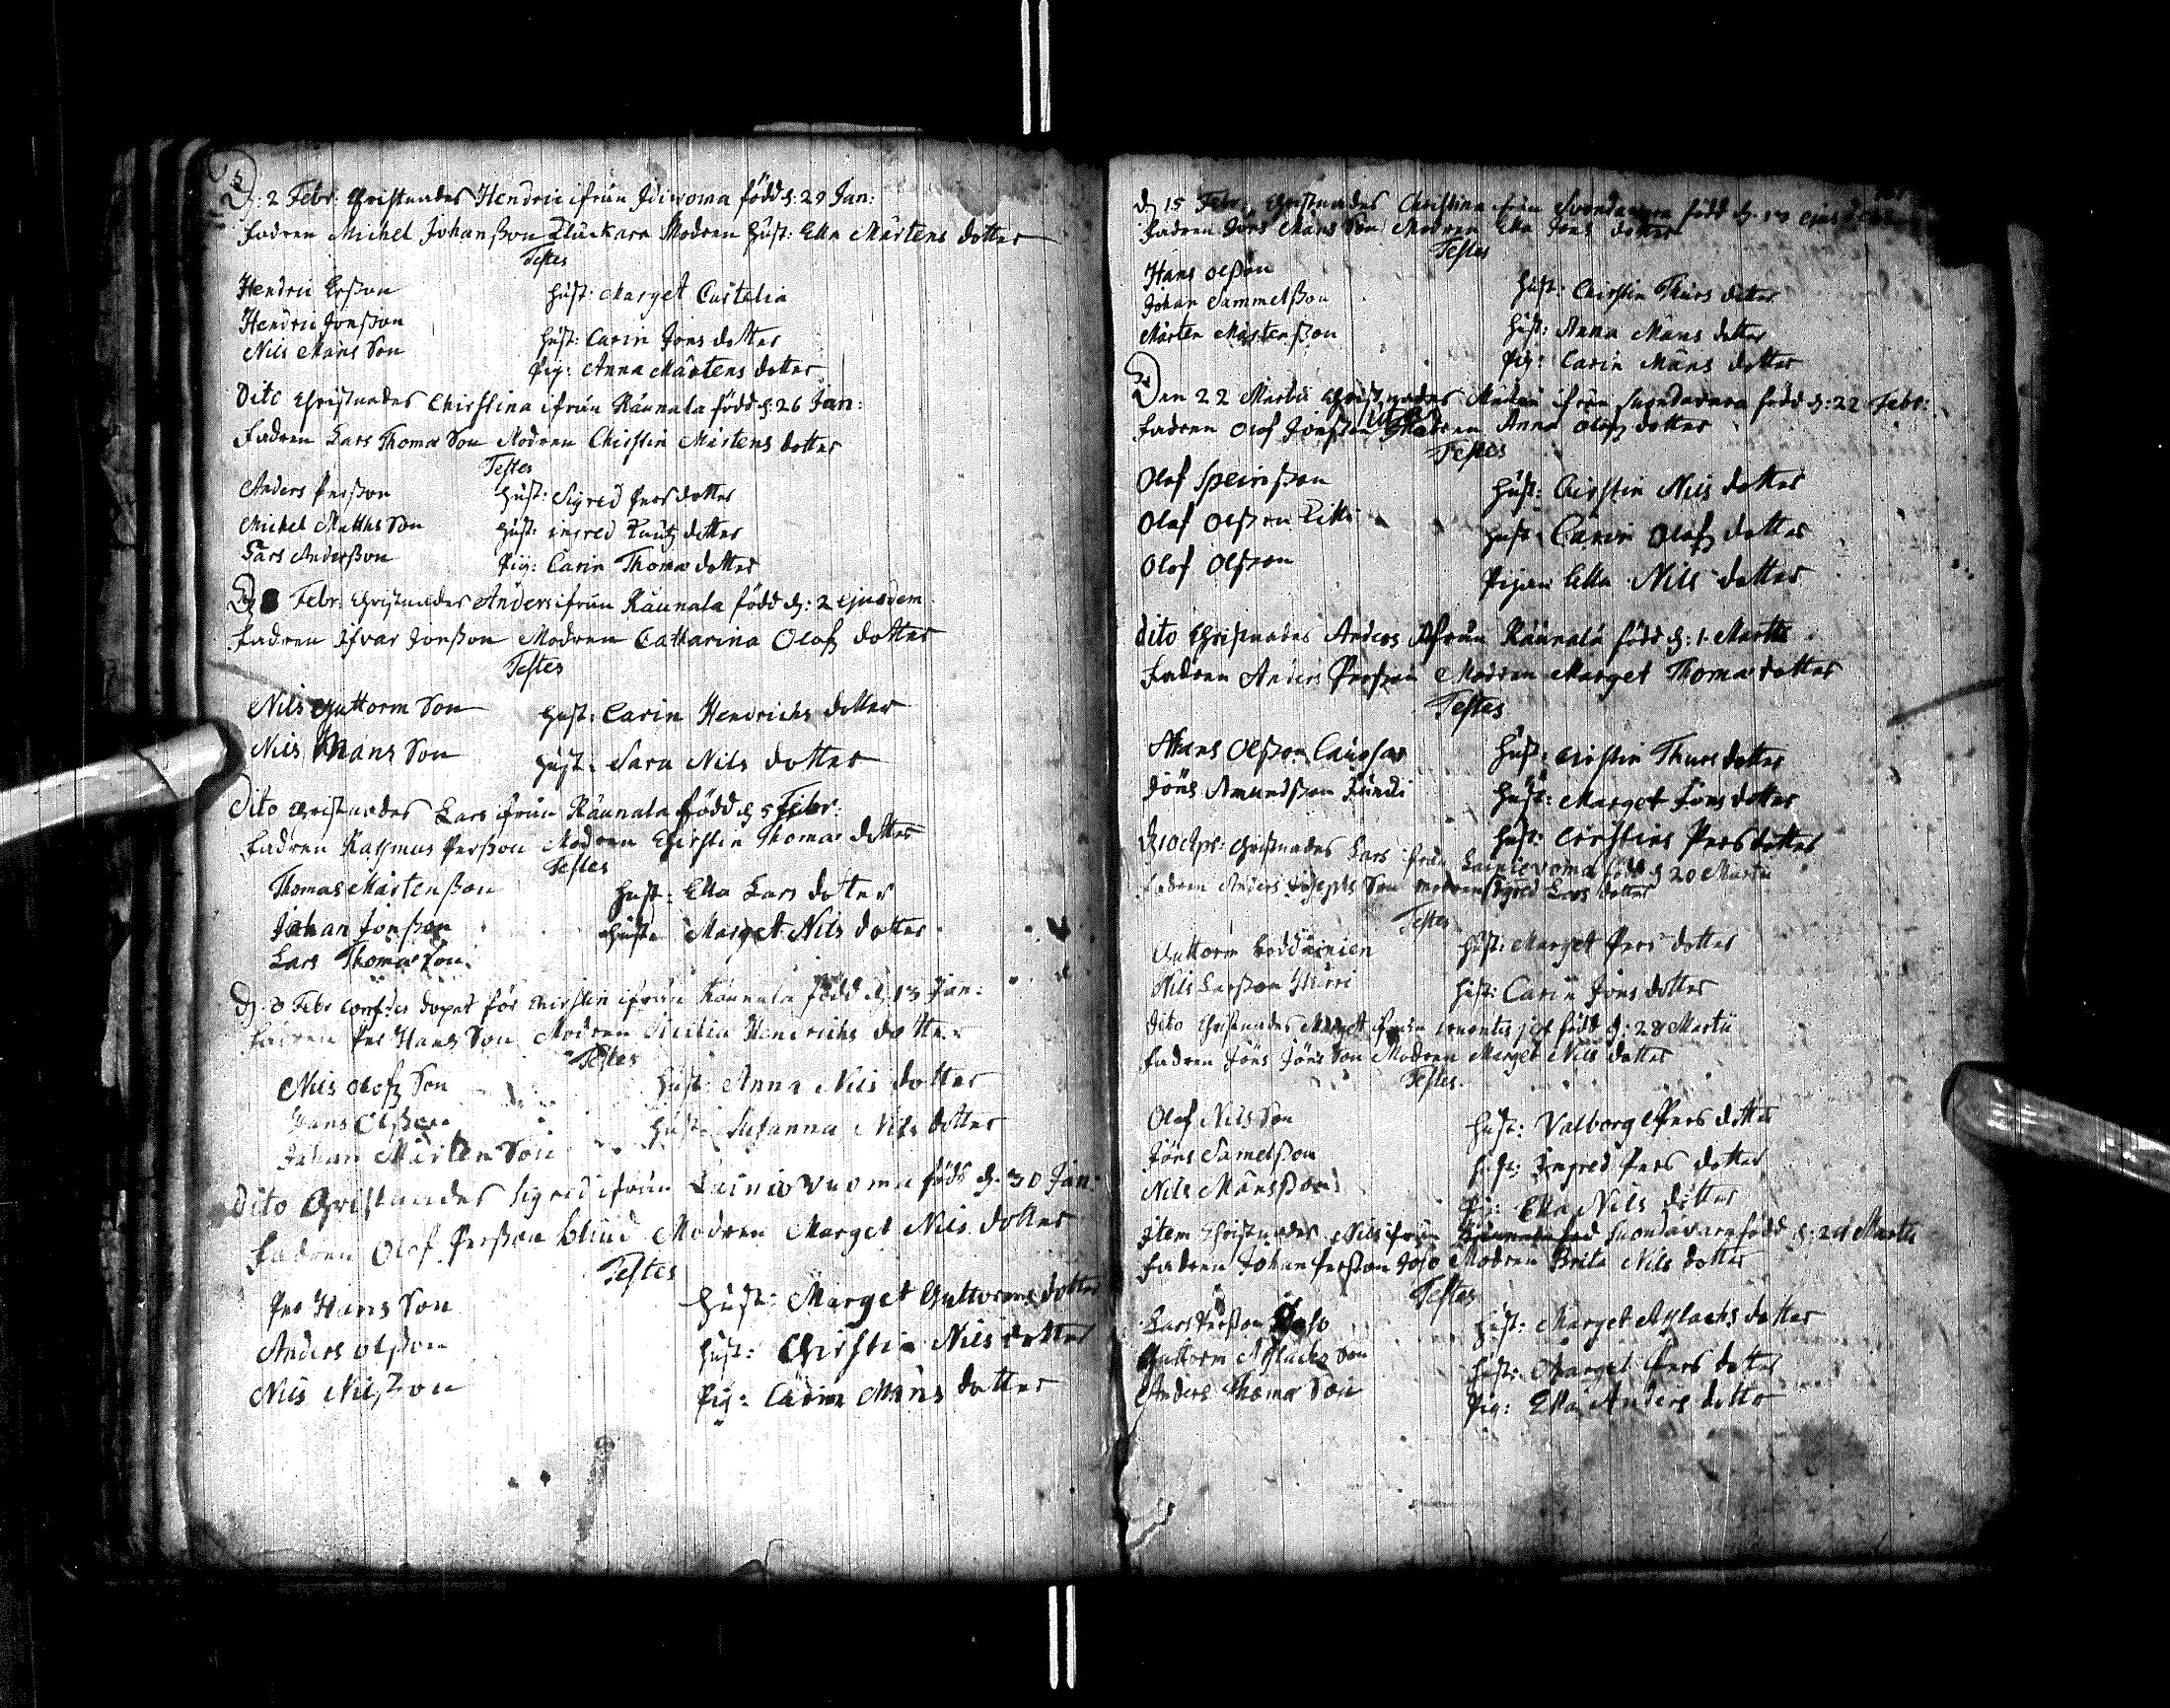 D: 2 Febr: Christnades Hendric ifrån Idiwoma född d: 29 Jan:
Fadren Michel Johanßon Modren Hust: Ella Mårtens dotter
Testes
Hendric Erßon Hust: Marget Custelia
Hendric Jonßon Hust: Carin Jöns dotter
Nils Måns Son Pig: Anna Mårtens dotter
Dito Christnades Chirstina ifrån Råunala född d: 26 Jan:
Fadren Lars Thomæ Son Modren Chirstin Mårtens dotter
Testes
Anders Perßon Hust: Sigred Pers dotter
Michel Matthis Son Hust: ingred dotter
Lars Anderßon Pig: Carin Thomæ dotter
D 8 Febr: Christnades Anders ifrån Råunala född d: 2 ejusdem
Fadren Ifvar Jonßon Modren Catharina Olofz dotter
Testes
Nils Guttorm Son Hust: Carin Hendrichs dotter
Nils Måns Son Hust: Sara Nils dotter
Dito Christnades Lars ifrån Råunala född d 5 Febr:
Fadren Rassmus Perßon Modren Chirstin Thomæ dotter
Testes
Thomas Mårtenßon Hust: Ella Lars dotter
Johan Jonßon Hust: Marget Nils dotter
Lars Thomæ Son
D: 8 Febr dopet för Chirstin ifrån Råunala född d. 13 Jan:
Fadren Per Hans Son Modren Cicilia Hendrichs dotter
Testes
Nils Olofz Son Hust: Anna Nils dotter
Hans Olßon Hust: Susanna Nils dotter
Johan Mårten Son
Dito Christnades Sigred ifrån Lainiovuoma född d. 30 Jan:
Fadren Olof Perßon Blind Modren Marget Nils dotter
Testes
Per Hans Son Hust: Marget Guttorms dotter
Anders Olßon Hust: Chirstin Nils dotter
Nils Nilßon Pig: Carin Måns dotter
D 15 Febr: Christnades Christina ifrån född d. 13
Fadren Jöns Måns Son Modren Ella Jöns dotter
Testes
Hans Olßon Hust: Chirstin Thurs dotter
Johan Sammelßon Hust: Anna Måns dotter
Mårten Mårtenßon Pig: Carin Måns dotter
Den 22 Martii Christnades ifrån Suondavara född d: 22 Febr:
Fadren Olof Jonßon Modren Anna Olofz dotter
Testes
Olof Speinßon Hust: Chirstin Nils dotter
Olof Olßon Hust: Carin Olofz dotter
Olof Olßon Pigan Ella Nils dotter
Dito Christnades Anders ifrån Råunala född d: 1. Martii
Fadren Anders Perßon Modren Marget Thomæ dotter
Testes
Hans Olßon Hust: Chirstin Thurs dotter
Jöns Amundßon Hust: Marget Jöns dotter
Hust: Chirstin Pers dotter
D 10 Apr: Christnades Lars ifrån Lainiovoma född d 20 Martii
Fadren Anders Josephs Son Modren Sigred Lars dotter
Testes
Guttorm Hust: Marget Pers dotter
Nils Larßon Hust: Carin Jöns dotter
Dito Christnades Marget ifrån född d: 28 Martii
Fadren Jöns Jöns Son Modren Marget Nils dotter
Testes
Olof Nils Son Hust: Valborg Pers dotter
Jöns Samelßon Hust: Ingred Pers dotter
Nils Månsßon Pig: Ella Nils dotter
Item Christnades Nils ifrån Suondavara född d: 24 Martii
Fadren Johan Perßon Joso Modren Brita Nils dotter
Testes
Lars Perßon Joso Hust: Marget Asslachs dotter
Guttorm Asslachs Son Hust: Marget Pers dotter
Anders Thomæ Son Pig: Ella Anders dotter